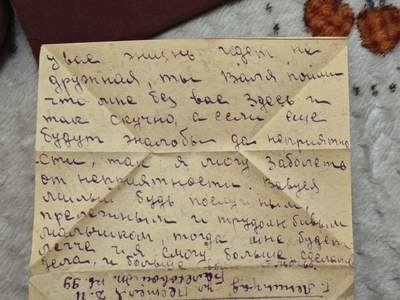 у вас жизнь идет не
дружная, ты Валя пойми
что мне без вас здесь и
так скучно, а если еще
будут жалобы да неприятно
сти, так я могу заболеть
от неприятности. Вовуся
милый будь послушным
прилежным и трудолюбивым
мальчиком, тогда мне будет
легче и я смогу больше сделать
дела, и больше
г. Ленинград